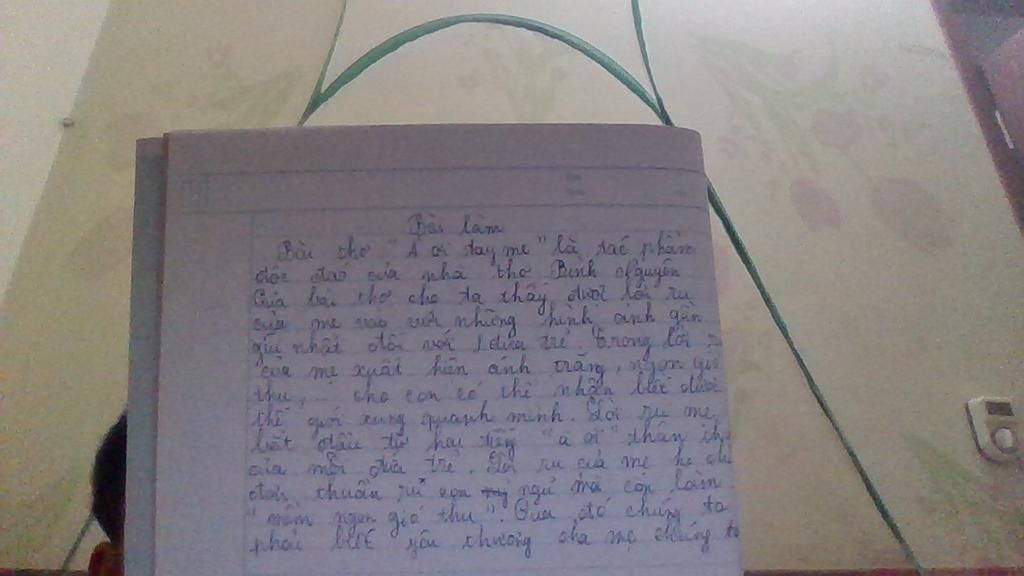 Bài làm
Bài thơ "À ơi tay mẹ" là tác phẩm
độc đáo của nhà thơ Bình Nguyên
Qua bài thơ cho ta thấy được lời ru
của mẹ vào với những hình ảnh gần
gũi nhất đối với 1 đứa trẻ. Trong lời
của mẹ xuất hiện ánh trăng, ngọn gió
thu, ... cho con có thể nhận biết được
thế giới xung quanh mình. Lời ru mẹ
bắt đầu từ hai tiếng "à ơi" thân
của mỗi đứa trẻ. Lời ru của mẹ
đơn thuần ru con ngủ mà còn làm
"mềm ngọn gió thu". Qua đó chúng ta
phải biết yêu thương cha mẹ chúng ta